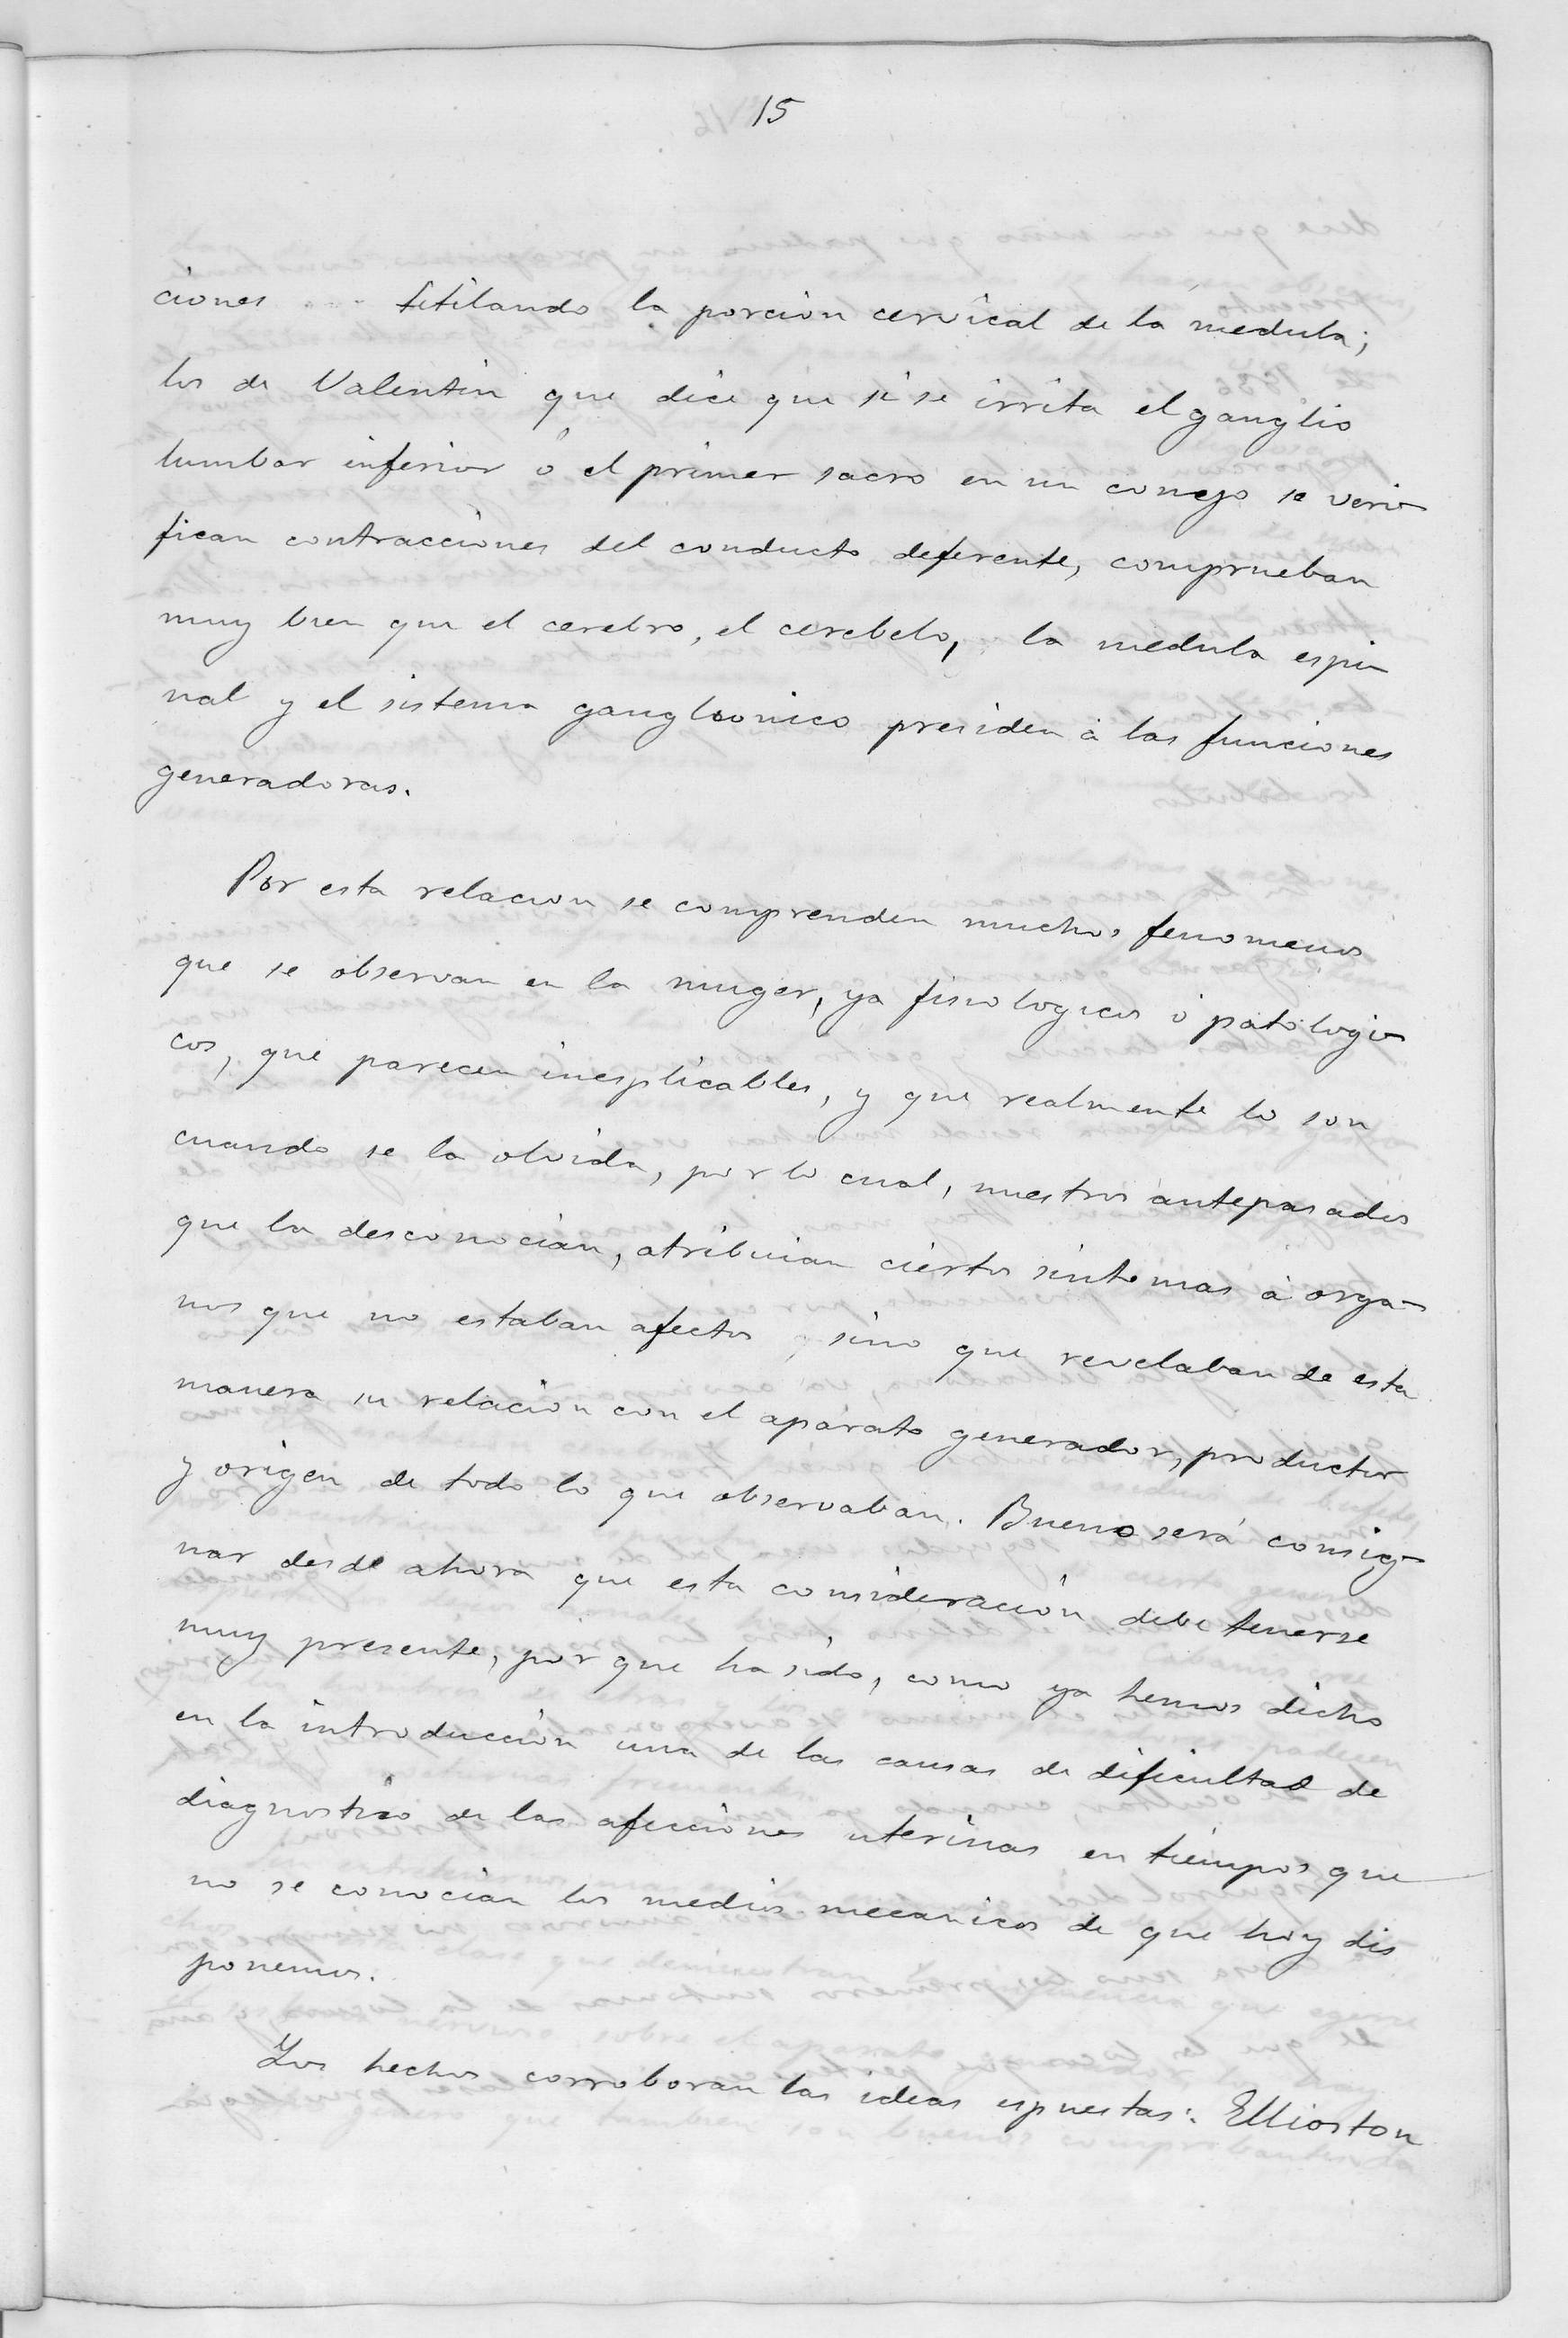 15
ciones titilando la porción cervical de la medula;
los de Valentin que dice que si se irrita el ganglio
lumbar inferior ó el primer sacro en un conejo se veri-
fican contracciones del conducto deferente, comprueban
muy bien que el cerebro, el cerebelo, la medula espi-
nal y el sistema ganglionico presiden á las funciones
generadoras.
Por esta relacion se comprenden muchos fenomenos
que se observan en la muger, ya fisiologicos ó patologi-
cos, que parecen inesplicables, y que realmente lo son
cuando se la olvida, por lo cual, nuestros antepasados
que la desconocian, atribuian ciertos sintomas á orga-
nos que no estaban afectos, sino que revelaban de esta
manera su relación con el aparato generador, productor
y origen de todo lo que observaban. Bueno será consig-
nar desde ahora que esta consideración debe tenerse
muy presente, por que ha sido, como ya hemos dicho
en la introducción una de las causas de dificultad de
diagnostico de las afecciones uterinas en tiempos que
no se conocian los medios mecanicos de que hoy dis
ponemos.
Los hechos corroboran las ideas espuestas: Ellioston